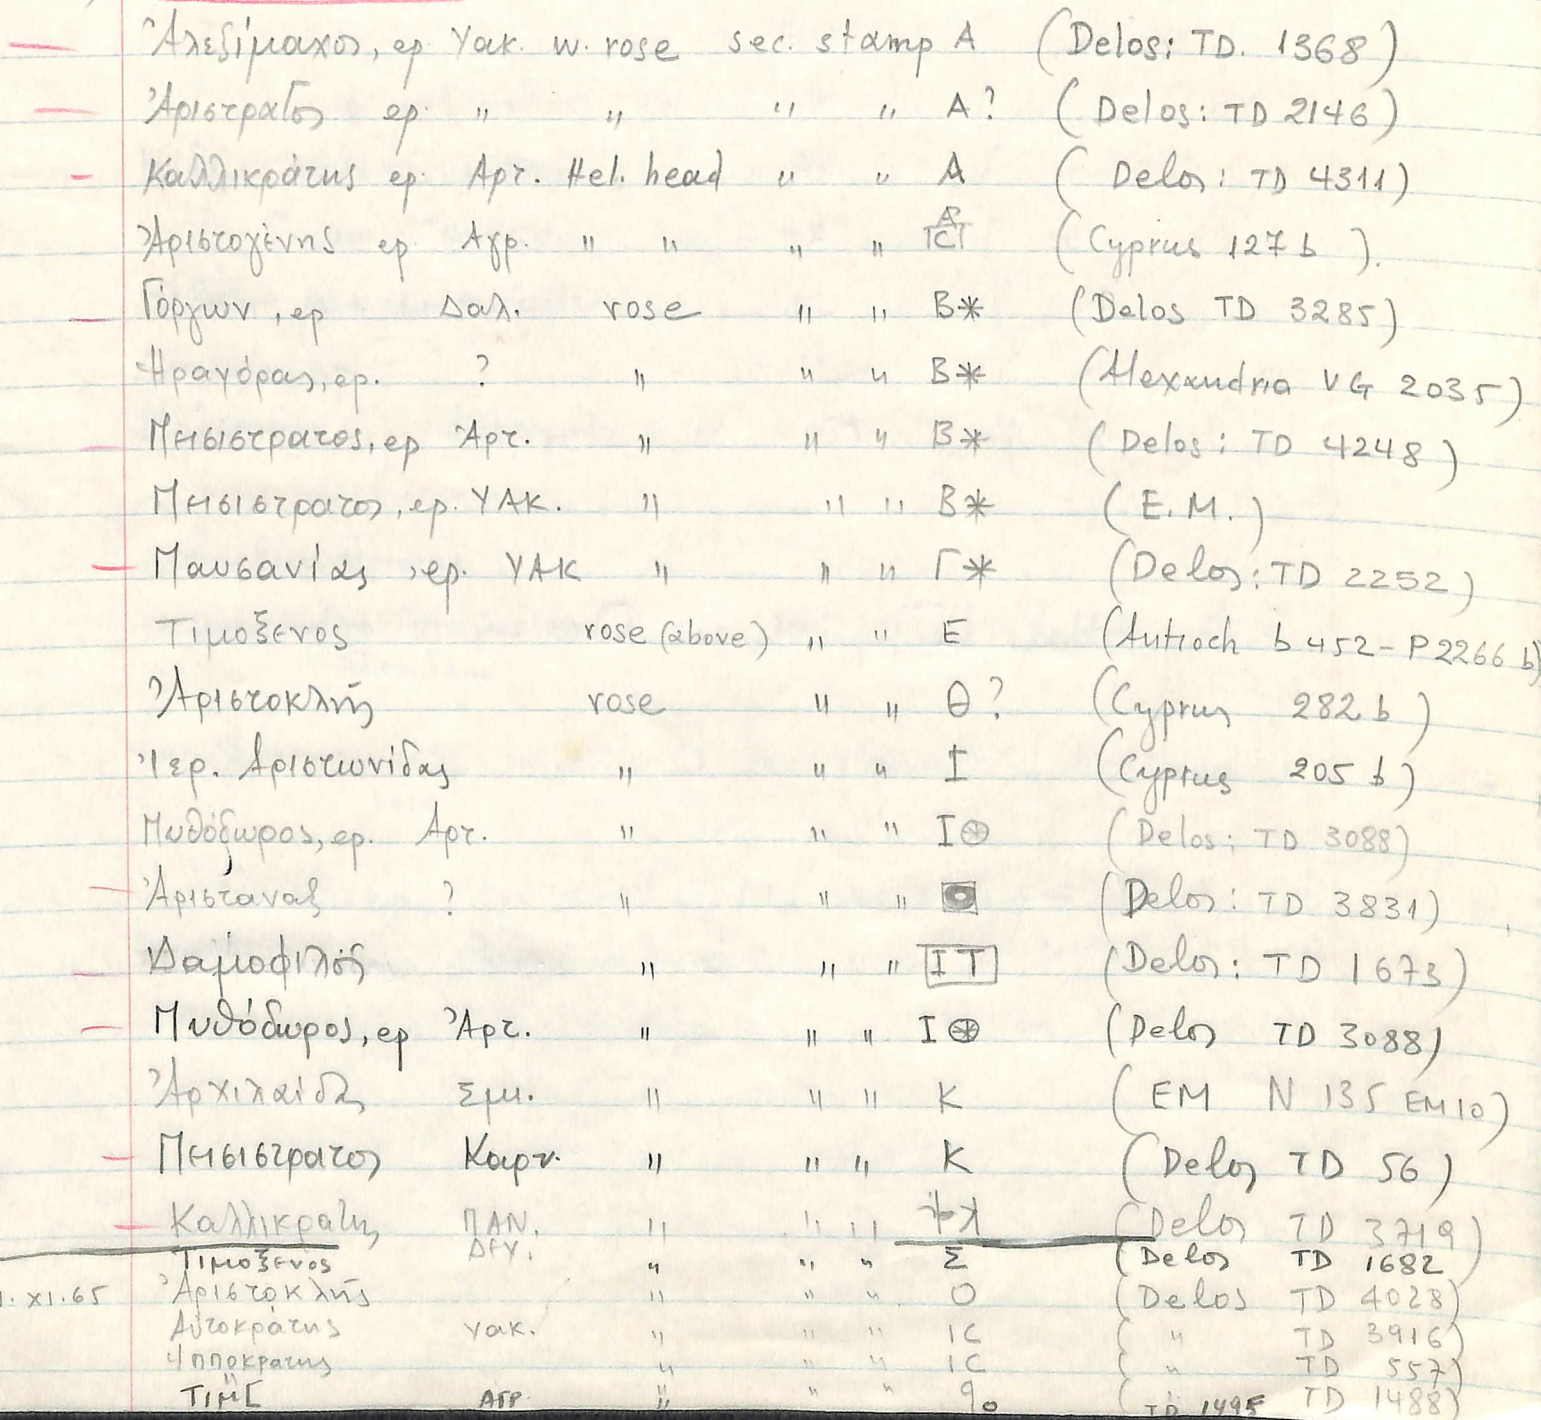 Ἀλεξίμαχος, ερ. Υακ. w. rose sec. stamp A (Delos: TD. 1368)
Ἀρίστρατος ερ. " " " " A? (Delos: TD 2146)
Καλλικράτης ερ. Αρτ. Hel. head " " A (Delos: TD 4311)
Ἀριστογένης ερ Αγρ. " " " " (Cyprus 127 b).
Γόργων, ερ Δαλ. rose " " B* (Delos TD 3285)
Ἡραγόρας, ερ. ? " " " B* (Alexandria VG 2035)
Πεισίστρατος, ερ Ἀρτ. " " " B* (Delos: TD 4248)
Πεισίστρατος, ερ. ΥΑΚ. " " " B* (E.M.)
Παυσανίας, ερ. ΥΑΚ " " " Γ* (Delos: TD 2252)
Τιμόξενος rose (above) " " E (Antioch b 452 - P2266 b)
Ἀριστοκλῆς rose " " Θ? (Cyprus 282 b)
Ἱερ. Ἀριστωνίδας " " " I (Cyprus 205 b)
Πυθόδωρος, ερ. Αρτ. " " " I⊛ (Delos: TD 3088)
Ἀρίσταναξ ? " " " (Delos: TD 3831)
Δαμόφιλος " " " IT (Delos: TD 1673)
Πυθόδωρος, ερ Ἀρτ. " " " I⊛ (Delos TD 3088)
Ἀρχιλαίδα Σμι. " " " K (EM N 135 EM10)
Πεισίστρατος Καρν. " " " K (Delos TD 56)
Καλλικράτης ΠΑΝ. " " " (Delos TD 3719)
Τιμόξενος Δαλ. " " " Σ (Delos TD 1682
1.XI.65 Ἀριστοκλῆς " " " O (Delos TD 4028)
Αὐτοκράτης Υακ. " " " IC ( " TD 3916)
Ἱπποκράτης " " " IC ( " TD 557)
ΤΙΜ[ ΑΓΡ. " " " (TD 1495 TD 1488)